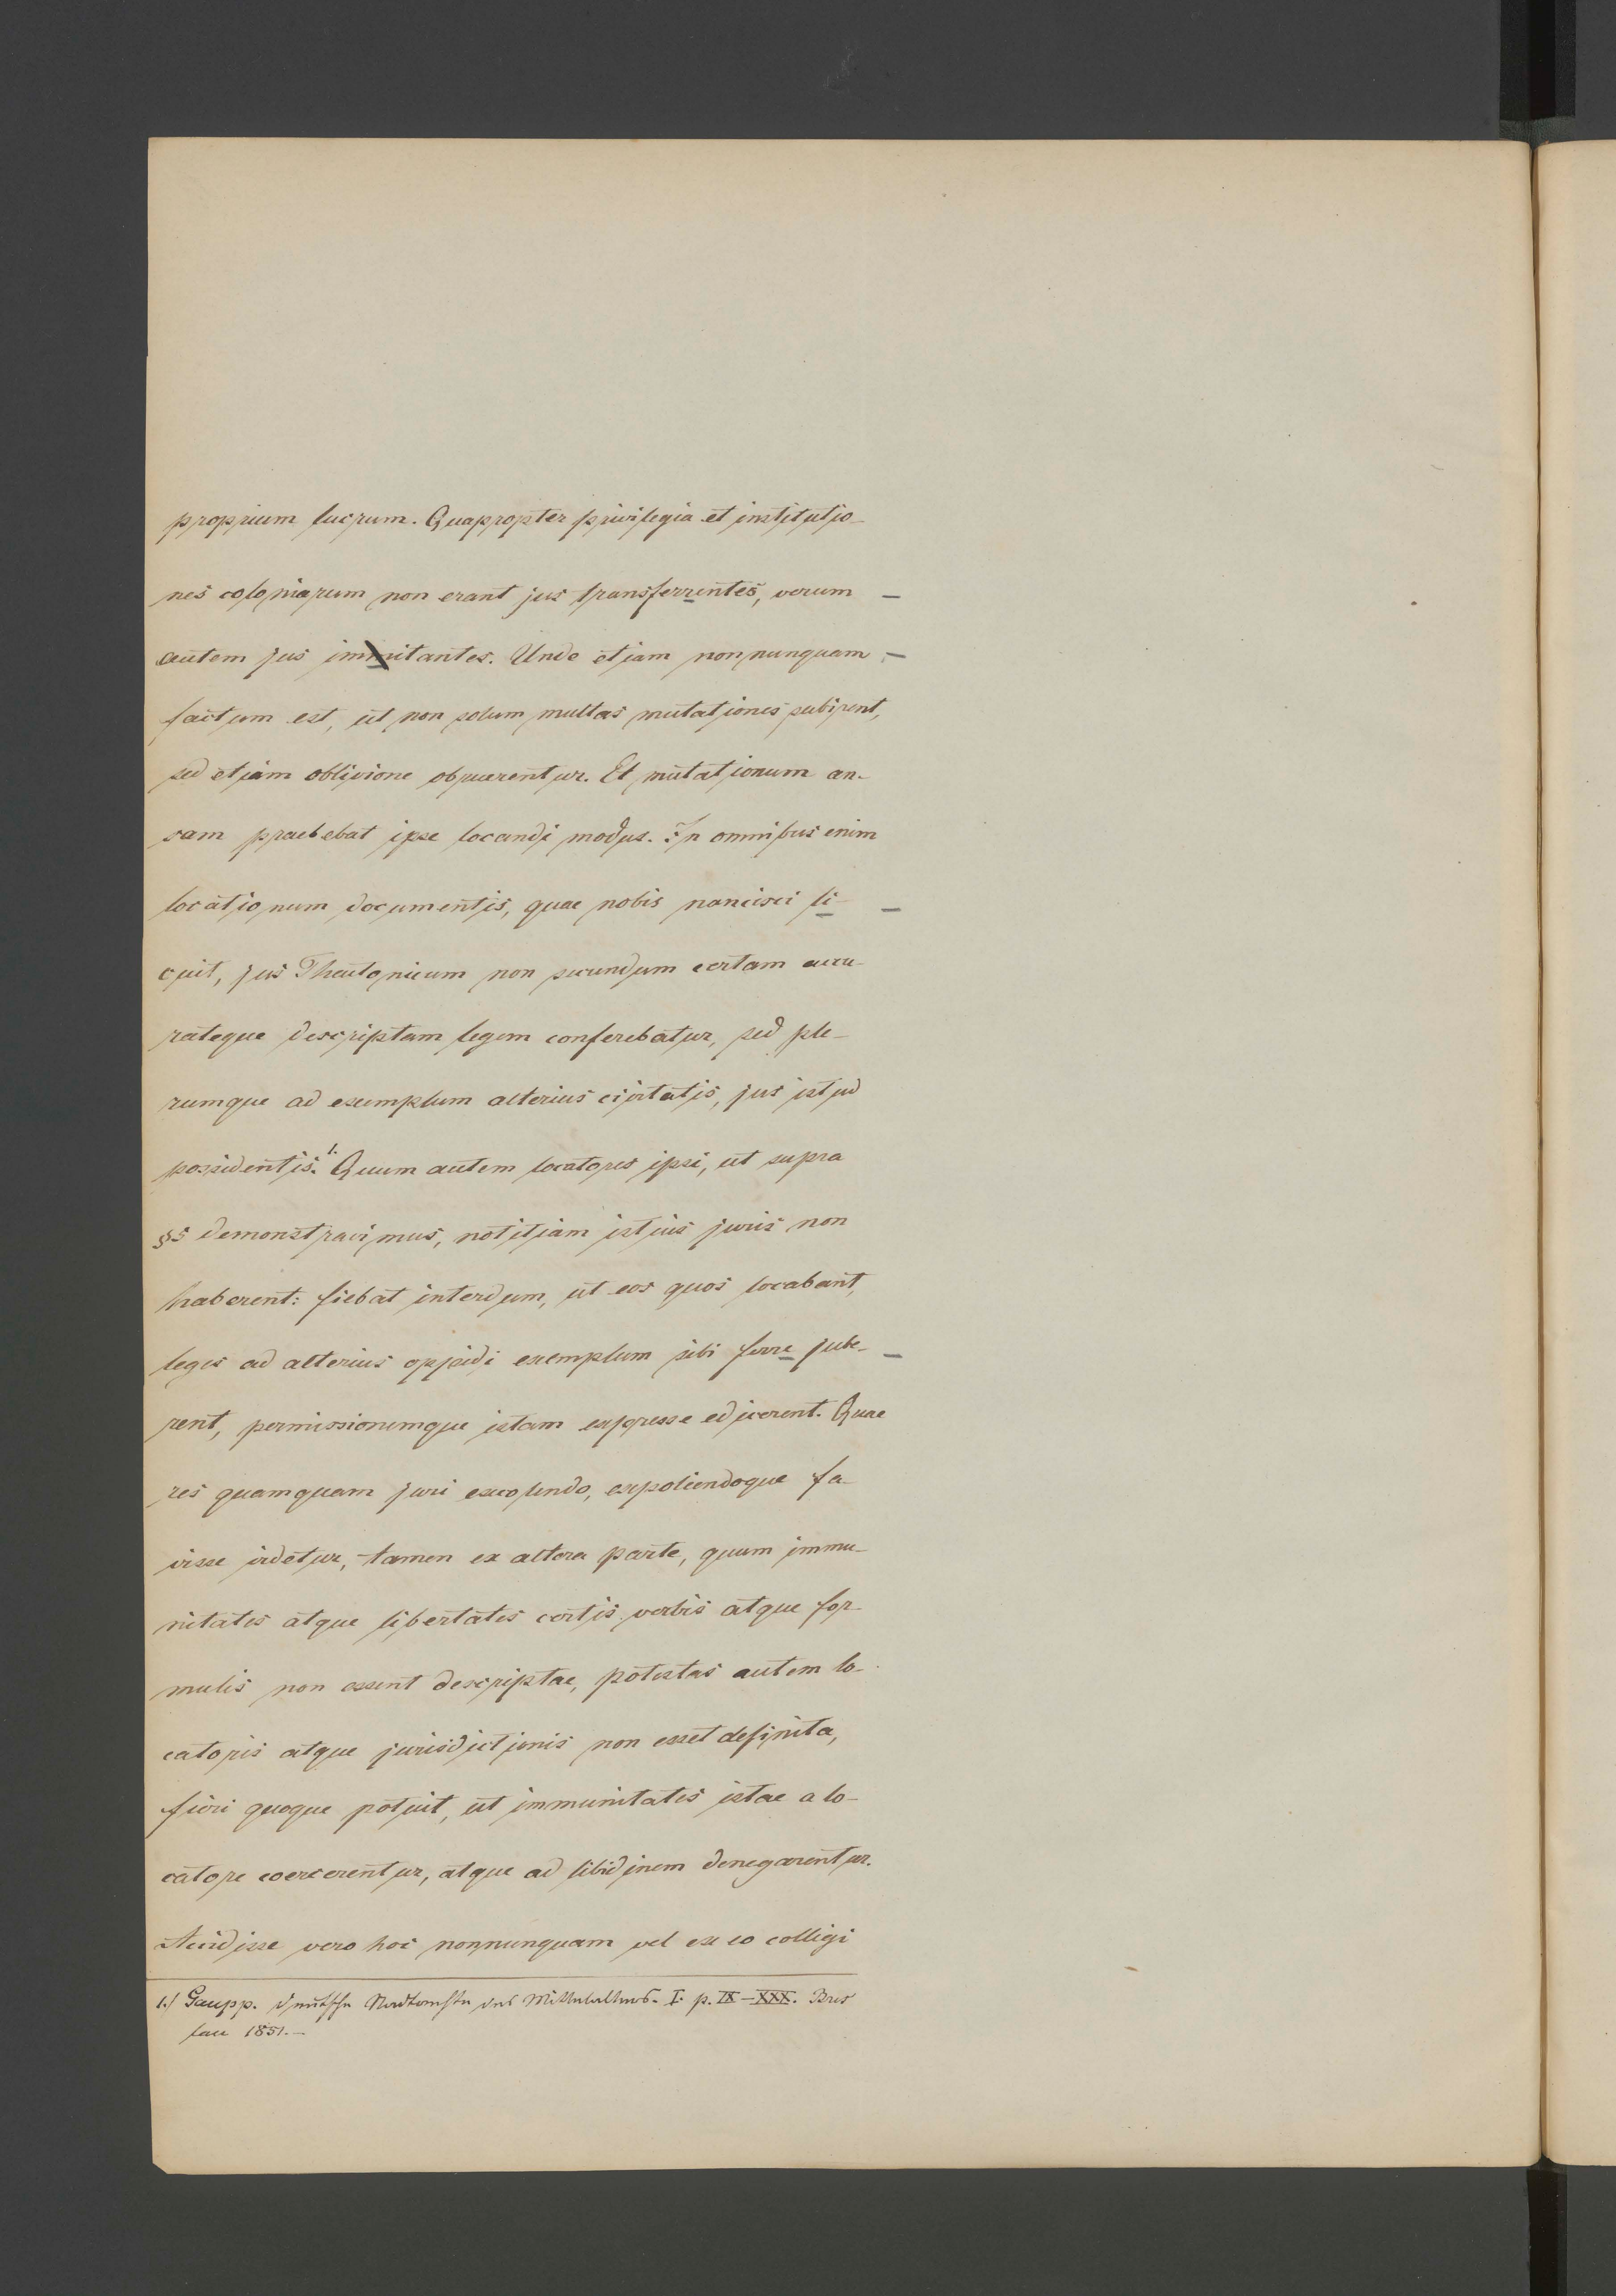 proprium lucrum. Quapropter privilegia et institutio-
nes coloniarum non erant jus transferrentes, verum —
autem jus immitantes. Unde etiam nonnunquam —
factum est, ut non solum multas mutationes subirent,
sed etiam oblivione obruerentur. Et mutationum an-
sam praebebat ipse locandi modus. In omnibus enim
locationum documentis, quae nobis nancisci li- —
cuit, jus Theutonicum non secundum certam accu-
rateque descriptam legem conferebatur, sed ple-
rumque ad exemplum alterius civitatis, jus istud
possidentis.1. Quum autem locatores ipsi, ut supra
§5 demonstravimus, notitiam istius juris non
haberent: fiebat interdum, ut eos quos locabant,
leges ad alterius oppidi exemplum sibi ferre jube- —
rent, permissionemque istam expresse edicerent. Quae
res quamquam juri excolendo, expoliendoque fa-
visse videtur, tamen ex altera parte, quum immu-
nitates atque libertates certis verbis atque for-
mulis non essent descriptae, potestas autem lo-
catoris atque jurisdictionis non esset definita,
fieri quoque potuit, ut immunitates istae a lo-
catore coercerentur, atque ad libidinem denegarentur.
Accidisse vero hoc nonnunquam vel ex eo colligi
1.) Gaupp. deutsche Stadtrechte des Mittelalters. I. p. IX–XXX. Bres
lau 1851.—